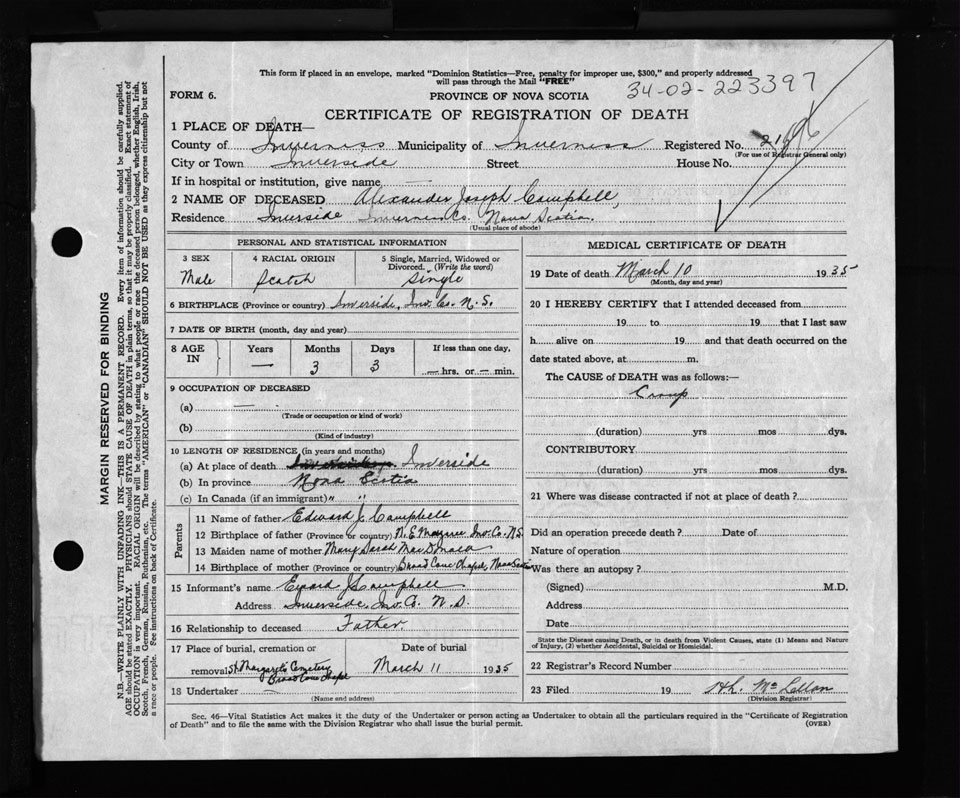 This form if placed in an envelope, marked "Dominion Statistics—Free, penalty for improper use, $300," and properly addressed
will pass through the Mail "FREE"
34-02-223397
FORM 6.
PROVINCE OF NOVA SCOTIA
CERTIFICATE OF REGISTRATION OF DEATH
1 PLACE OF DEATH—
County of Inverness Municipality of Inverness Registered No.
(For use of Registrar General only)
City or Town Inverside Street House No.
If in hospital or institution, give name —
2 NAME OF DECEASED Alexander Joseph Campbell,
Residence Inverside Inverness Co. Nova Scotia.
(Usual place of abode)
PERSONAL AND STATISTICAL INFORMATION
3 SEX 4 RACIAL ORIGIN 5 Single, Married, Widowed or Divorced. (Write the word)
Male Scotch Single
6 BIRTHPLACE (Province or country) Inverside, Inv. Co. N.S.
7 DATE OF BIRTH (month, day and year)
8 AGE IN Years Months Days If less than one day,
— 3 3 — hrs. or — min.
9 OCCUPATION OF DECEASED
(a) —
(Trade or occupation or kind of work)
(b)
(Kind of industry)
10 LENGTH OF RESIDENCE (in years and months)
(a) At place of death Inverside
(b) In province Nova Scotia
(c) In Canada (if an immigrant) " "
Parents
11 Name of father Edward J. Campbell
12 Birthplace of father (Province or country) N.E. Margaree Inv. Co. N.S.
13 Maiden name of mother Mary Sarah MacDonald
14 Birthplace of mother (Province or country) Broad Cove Chapel, Nova Scotia
15 Informant's name Edward J Campbell
Address Inverside, Inv. Co. N.S.
16 Relationship to deceased Father.
17 Place of burial, cremation or Date of burial
removal St Margarets Cemetery Broad Cove Chapel March 11 1935
18 Undertaker —
(Name and address)
MEDICAL CERTIFICATE OF DEATH
19 Date of death March 10 1935
(Month, day and year)
20 I HEREBY CERTIFY that I attended deceased from
19 to 19 that I last saw
h alive on 19 and that death occurred on the
date stated above, at m.
The CAUSE of DEATH was as follows:—
Croup
(duration) yrs mos dys.
CONTRIBUTORY
(duration) yrs mos dys.
21 Where was disease contracted if not at place of death?
Did an operation precede death? Date of
Nature of operation
Was there an autopsy?
(Signed) M.D.
Address
Date
State the Disease causing Death, or in death from Violent Causes, state (1) Means and Nature
of Injury, (2) whether Accidental, Suicidal or Homicidal.
22 Registrar's Record Number
23 Filed 19 Mc Lellan
(Division Registrar)
Sec. 46—Vital Statistics Act makes it the duty of the Undertaker or person acting as Undertaker to obtain all the particulars required in the "Certificate of Registration
of Death" and to file the same with the Division Registrar who shall issue the burial permit. (OVER)
MARGIN RESERVED FOR BINDING
N.B.—WRITE PLAINLY WITH UNFADING INK—THIS IS A PERMANENT RECORD. Every item of information should be carefully supplied.
AGE should be stated EXACTLY. PHYSICIANS should STATE CAUSE OF DEATH in plain terms, so that it may be properly classified. Exact statement of
OCCUPATION is very important. RACIAL ORIGIN will be described by stating to what people or race the deceased person belonged, whether English, Irish,
Scotch, French, German, Russian, Ruthenian, etc. The terms "AMERICAN" or "CANADIAN" SHOULD NOT BE USED as they express citizenship but not
a race or people. See instructions on back of Certificate.